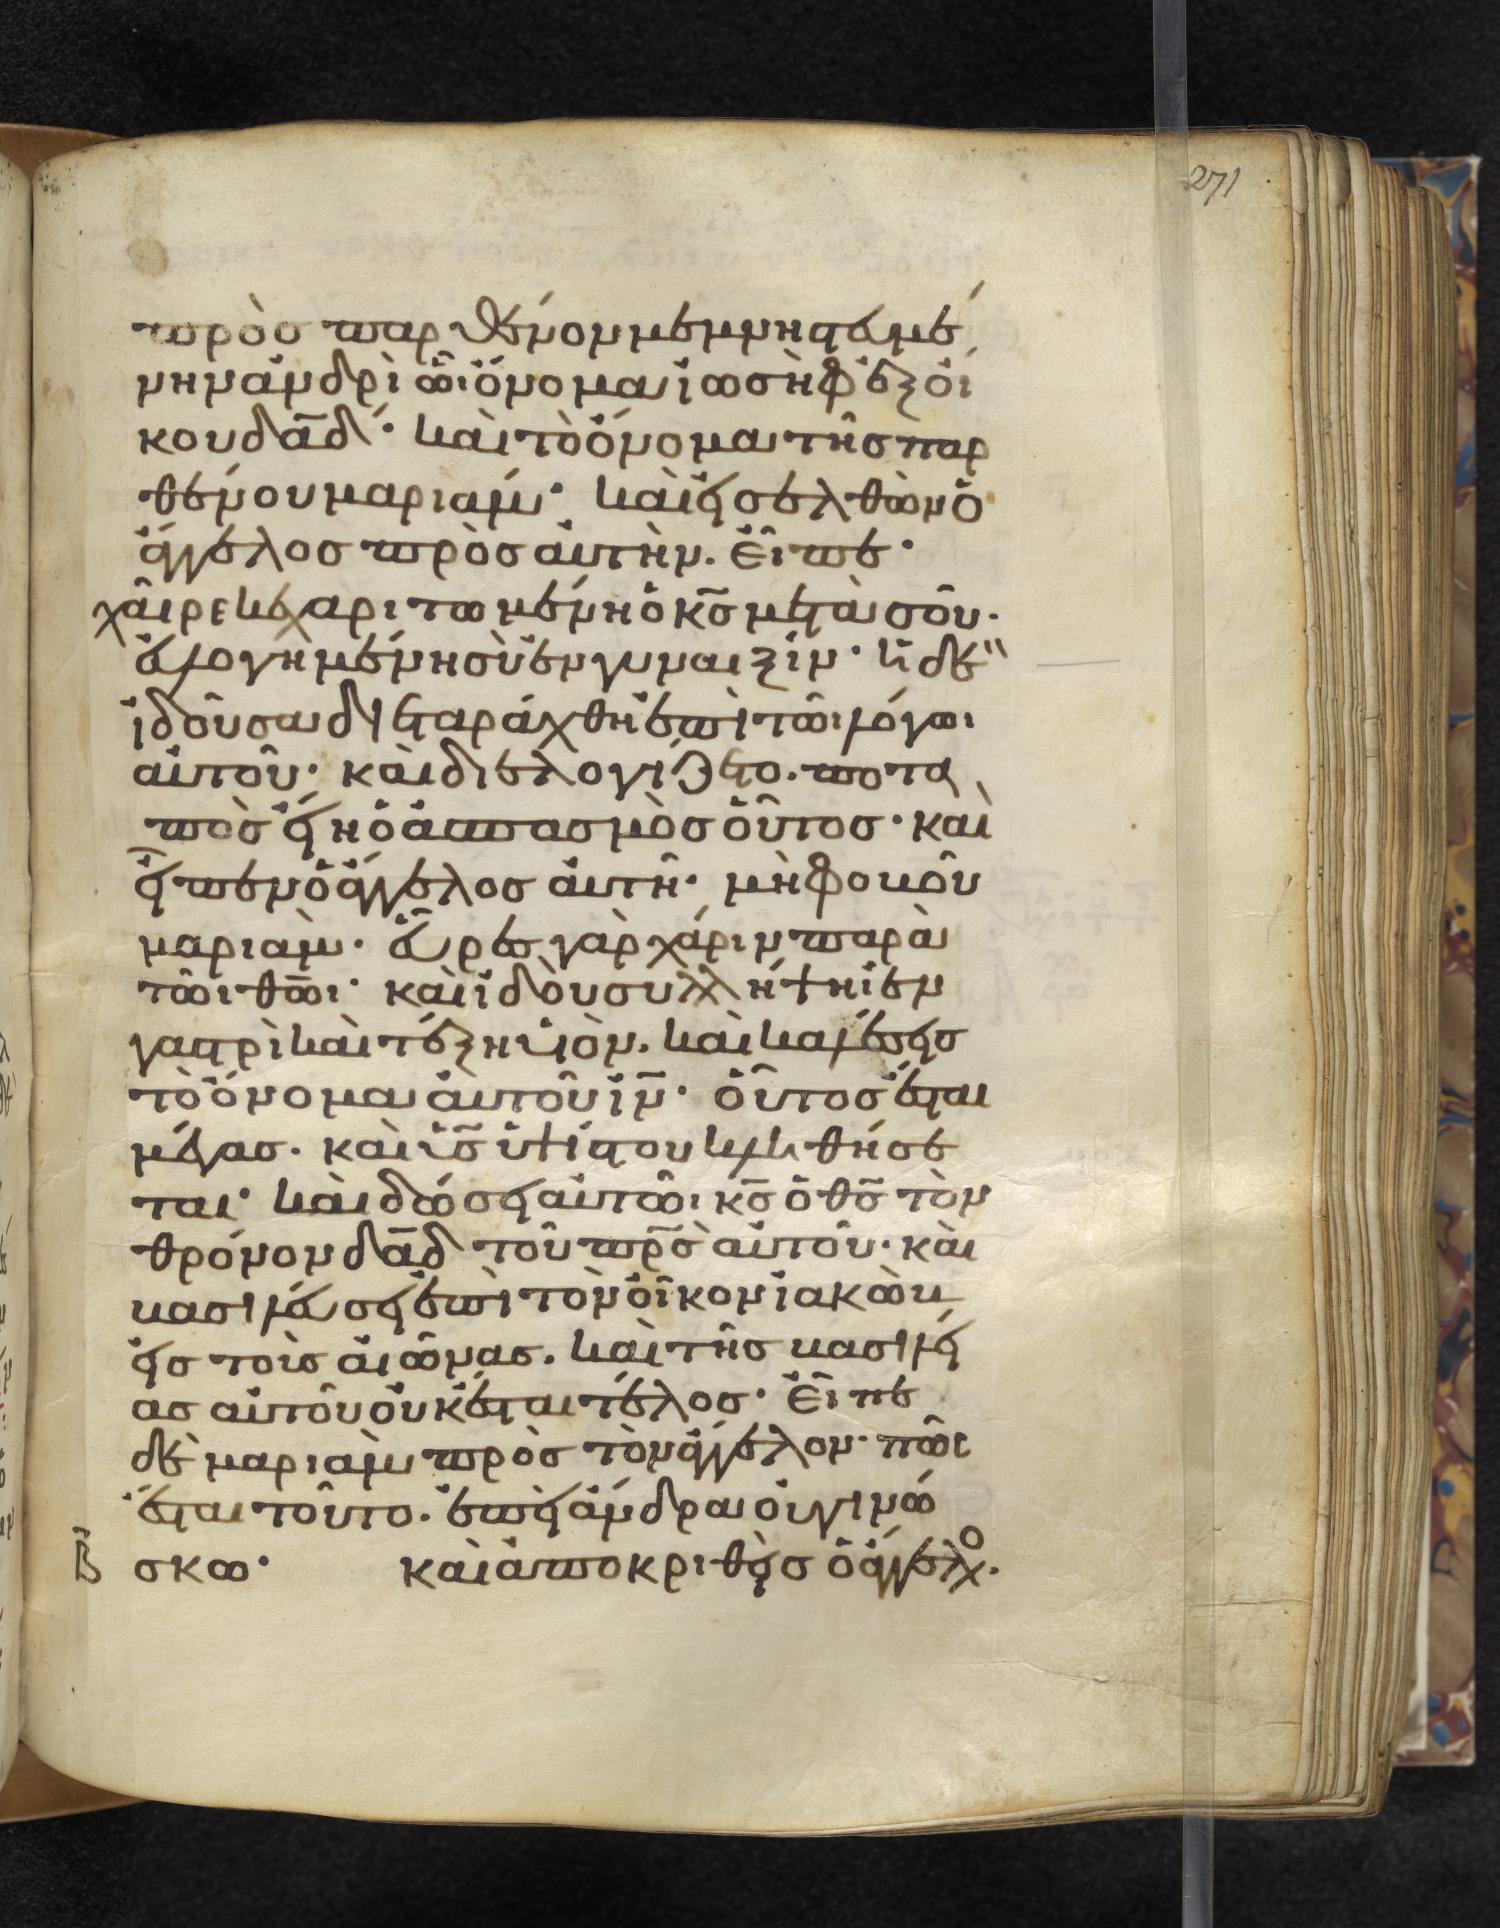 271
πρὸσ παρθένον μεμνηστευμέ
νην ἀνδρὶ ὧι ὄνομα ἰωσὴφ ἐξ ὀί
κου δα̅δ· καὶ τὸ ὄνομα τῆσ παρ
θένου μαριάμ· καὶ ἐισελθὼν ὁ
ἄγγελοσ πρὸσ αὐτὴν. εἶπε·
χαῖρε κεχαριτωμένη ὁ κ̅σ μετὰ σοῦ.
ἐυλογημένη σὺ ἐν γυναιξίν· ἡ δὲ
ἰδοῦσα διεταράχθη ἐπὶ τῶι λόγωι
αὐτοῦ· καὶ διελογίζετο. ποτα
πὸσ ἔιη ὁ ἀσπασμὸσ οὗτοσ· καὶ
εἶπεν ὁ ἄγγελοσ αὐτῆ· μὴ φοβοῦ
μαριάμ· εὗρεσ γὰρ χάριν παρὰ
τῶι θ̅ωι· καὶ ἰδοὺ συλλήψη ἐν
γαστρὶ καὶ τέξη υἱὸν. καὶ καλέσεισ
τὸ ὄνομα αὐτοῦ ι̅ν· οὗτοσ ἔσται
μέγασ. καὶ υ̅σ ὑψίστου κληθήσε
ται· καὶ δώσει αὐτῶι κ̅σ ὁ θ̅σ τὸν
θρόνον δα̅δ τοῦ π̅ρσ αὐτοῦ· καὶ
βασιλεύσει ἐπὶ τὸν οἶκον ἰακὼβ
εἰσ τοὺσ αἰῶνασ. καὶ τῆσ βασιλεί
ασ αὐτοῦ οὐκ ἔσται τέλοσ· εἶπε
δὲ μαριὰμ πρὸσ τὸν ἄγγελον· πῶσ
ἔσται τοῦτο. ἐπεὶ ἄνδρα οὐ γινώ
β σκω· καὶ ἀποκριθεὶσ ὁ ἄγγελο.